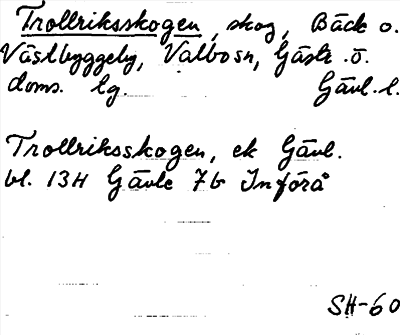 Trollriksskogen, skog, Bäck o.
Västbyggeby, Valbo sn, Gästr. ö.
doms. lg. Gävl. l.
Trollriksskogen, ek Gävl.
bl. 13H Gävle 7b Införå
SH-60